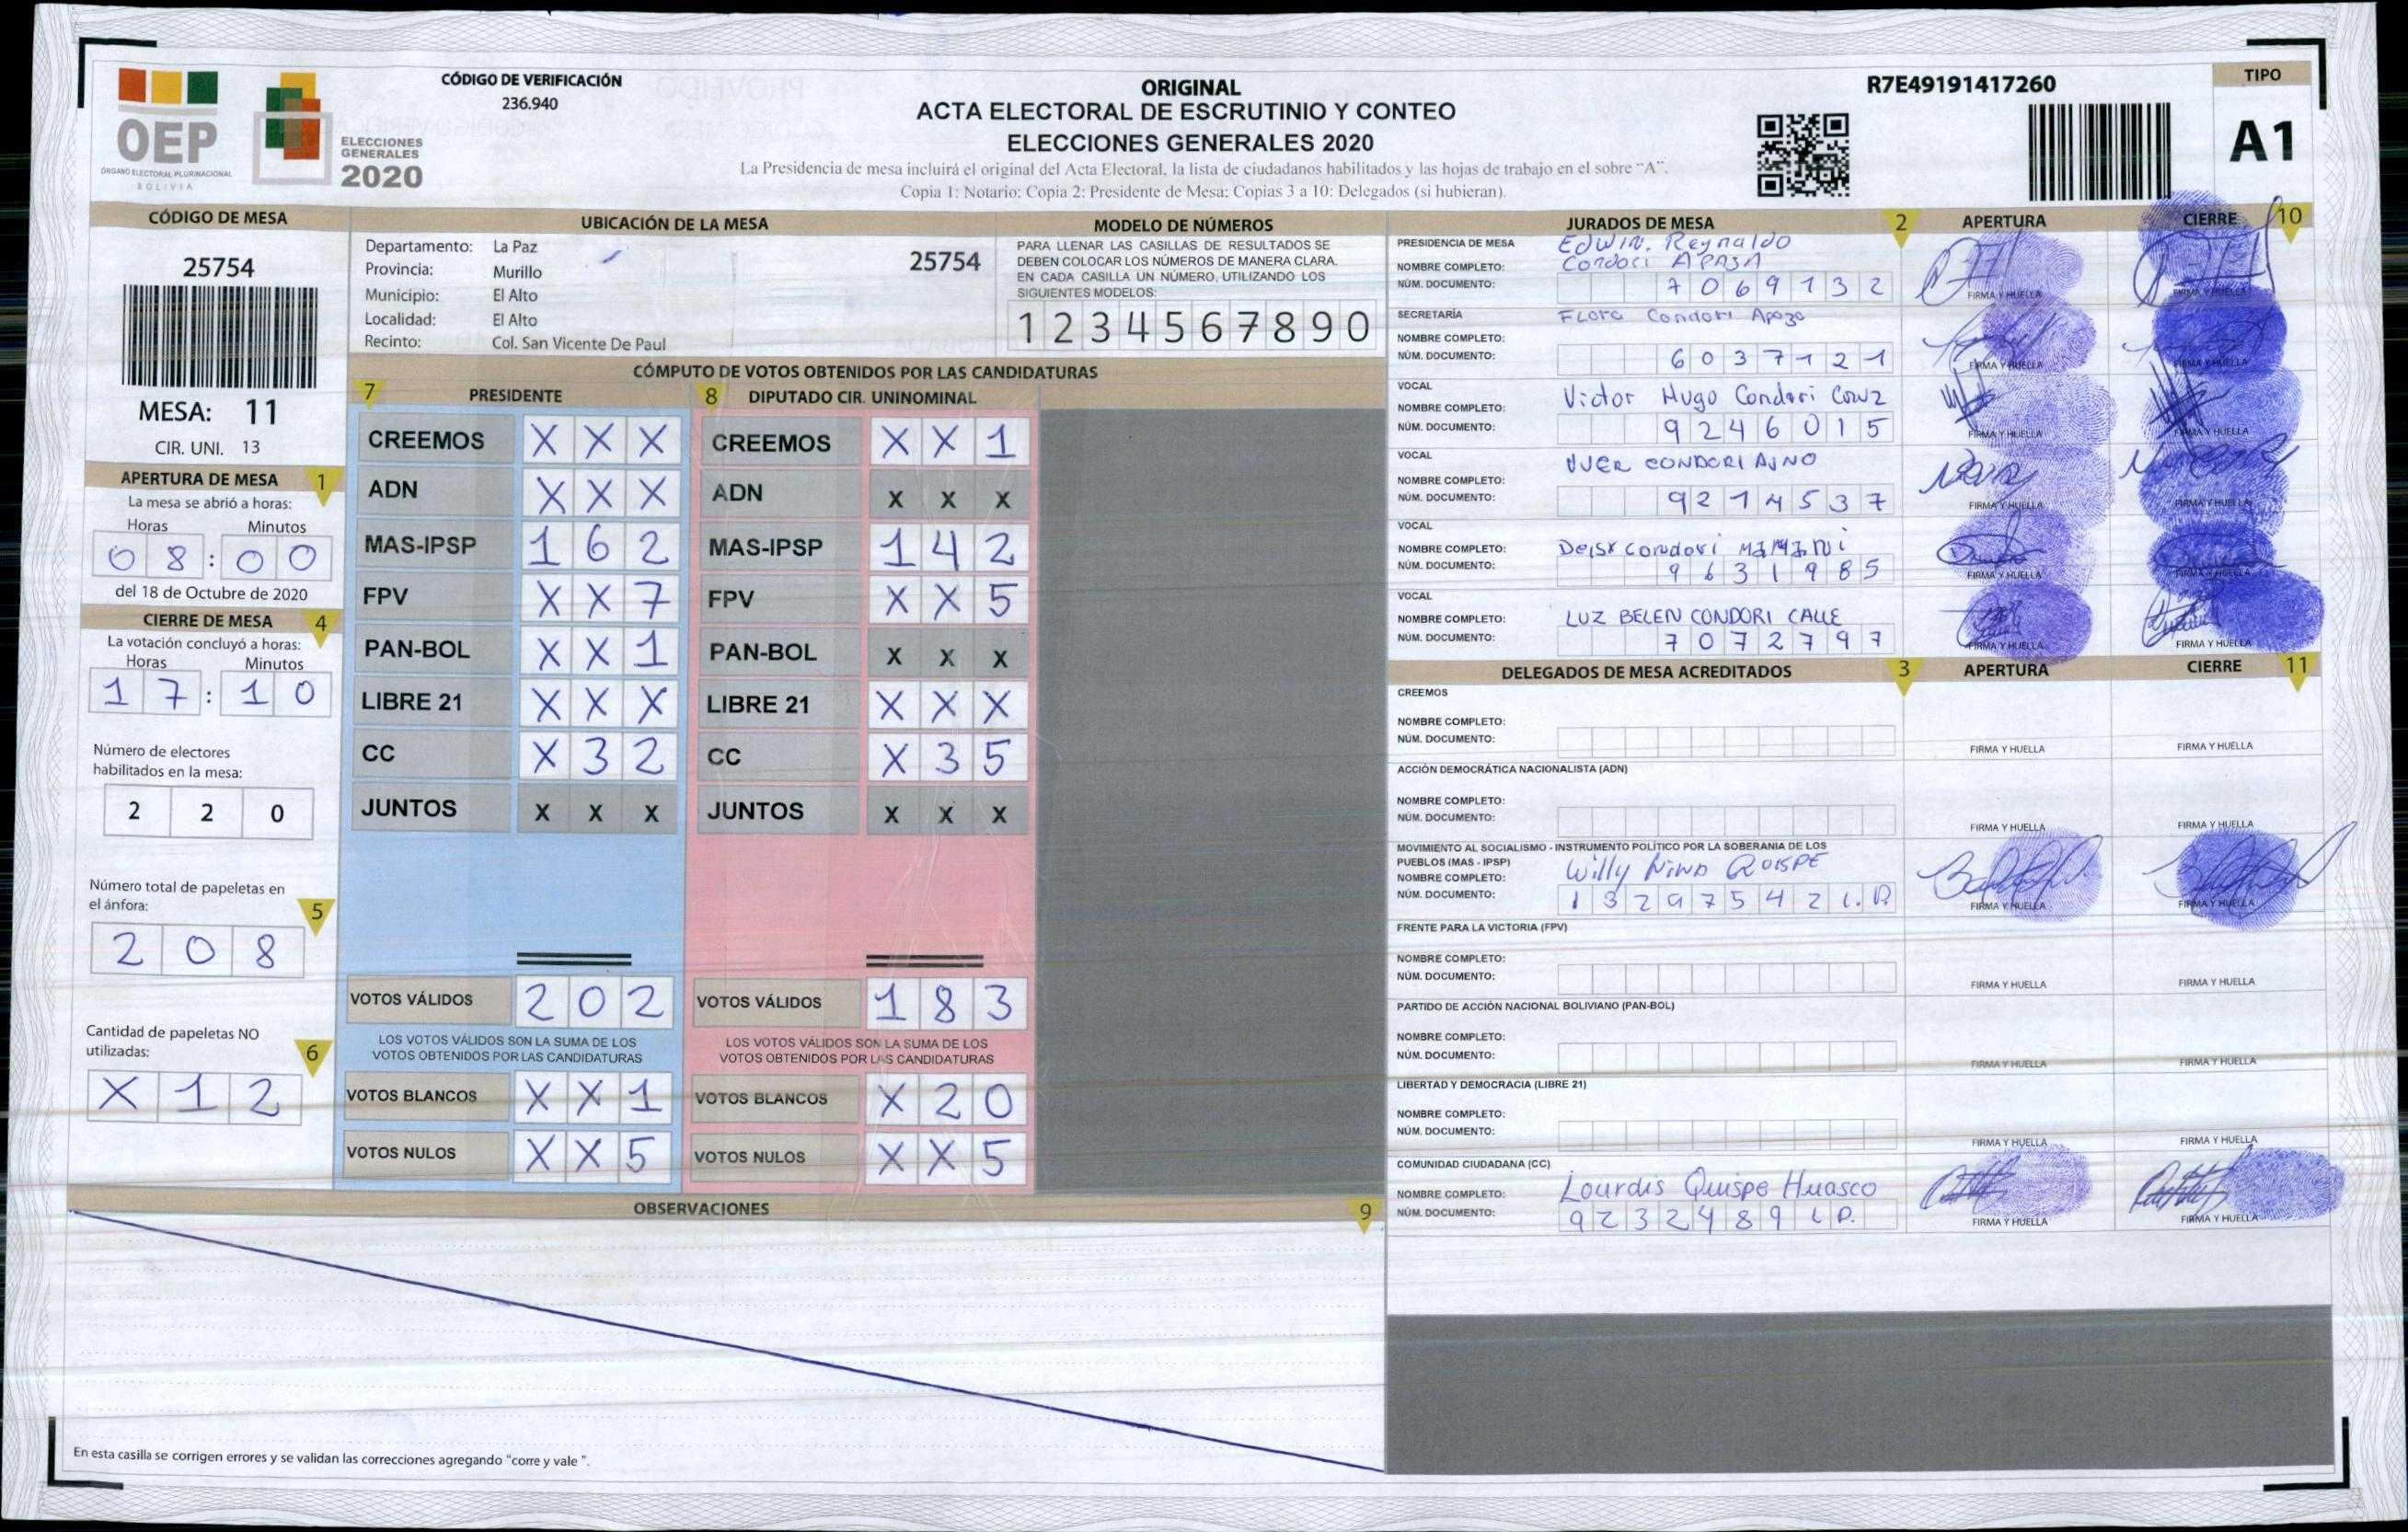 OEP
ÓRGANO ELECTORAL PLURINACIONAL
BOLIVIA
ELECCIONES
GENERALES
2020
CÓDIGO DE VERIFICACIÓN
236.940
ORIGINAL
ACTA ELECTORAL DE ESCRUTINIO Y CONTEO
ELECCIONES GENERALES 2020
La Presidencia de mesa incluirá el original del Acta Electoral, la lista de ciudadanos habilitados y las hojas de trabajo en el sobre "A".
Copia 1: Notario: Copia 2: Presidente de Mesa: Copias 3 a 10: Delegados (si hubieran).
R7E49191417260
TIPO
A1
CÓDIGO DE MESA
25754
MESA: 11
CIR. UNI. 13
APERTURA DE MESA 1
La mesa se abrió a horas:
Horas Minutos
08:00
del 18 de Octubre de 2020
CIERRE DE MESA 4
La votación concluyó a horas:
Horas Minutos
17:10
Número de electores
habilitados en la mesa:
2 2 0
Número total de papeletas en
el ánfora: 5
2 0 8
Cantidad de papeletas NO
utilizadas: 6
X 1 2
UBICACIÓN DE LA MESA
Departamento: La Paz
25754
Provincia: Murillo
Municipio: El Alto
Localidad: El Alto
Recinto: Col. San Vicente De Paul
MODELO DE NÚMEROS
PARA LLENAR LAS CASILLAS DE RESULTADOS SE
DEBEN COLOCAR LOS NÚMEROS DE MANERA CLARA.
EN CADA CASILLA UN NÚMERO, UTILIZANDO LOS
SIGUIENTES MODELOS:
1 2 3 4 5 6 7 8 9 0
CÓMPUTO DE VOTOS OBTENIDOS POR LAS CANDIDATURAS
7 PRESIDENTE
CREEMOS X X X
ADN X X X
MAS-IPSP 1 6 2
FPV X X 7
PAN-BOL X X 1
LIBRE 21 X X X
CC X 3 2
JUNTOS X X X
VOTOS VÁLIDOS 2 0 2
LOS VOTOS VÁLIDOS SON LA SUMA DE LOS
VOTOS OBTENIDOS POR LAS CANDIDATURAS
VOTOS BLANCOS X X 1
VOTOS NULOS X X 5
8 DIPUTADO CIR. UNINOMINAL
CREEMOS X X 1
ADN X X X
MAS-IPSP 1 4 2
FPV X X 5
PAN-BOL X X X
LIBRE 21 X X X
CC X 3 5
JUNTOS X X X
VOTOS VÁLIDOS 1 8 3
LOS VOTOS VÁLIDOS SON LA SUMA DE LOS
VOTOS OBTENIDOS POR LAS CANDIDATURAS
VOTOS BLANCOS X 2 0
VOTOS NULOS X X 5
OBSERVACIONES 9
En esta casilla se corrigen errores y se validan las correcciones agregando "corre y vale ".
JURADOS DE MESA 2 APERTURA CIERRE 10
PRESIDENCIA DE MESA Edwin. Reynaldo
NOMBRE COMPLETO: Condori APAZA
NÚM. DOCUMENTO: 7069132 FIRMA Y HUELLA FIRMA Y HUELLA
SECRETARÍA Flora Condori Apaza
NOMBRE COMPLETO:
NÚM. DOCUMENTO: 6037121 FIRMA Y HUELLA FIRMA Y HUELLA
VOCAL
NOMBRE COMPLETO: Victor Hugo Condori Cruz
NÚM. DOCUMENTO: 9246015 FIRMA Y HUELLA FIRMA Y HUELLA
VOCAL CONDORI
NOMBRE COMPLETO:
NÚM. DOCUMENTO: 9214537 FIRMA Y HUELLA FIRMA Y HUELLA
VOCAL
NOMBRE COMPLETO: Deisy Condori MAMANI
NÚM. DOCUMENTO: 9631985 FIRMA Y HUELLA FIRMA Y HUELLA
VOCAL
NOMBRE COMPLETO: LUZ BELEN CONDORI CALLE
NÚM. DOCUMENTO: 7072797 FIRMA Y HUELLA FIRMA Y HUELLA
DELEGADOS DE MESA ACREDITADOS 3 APERTURA CIERRE 11
CREEMOS
NOMBRE COMPLETO:
NÚM. DOCUMENTO: FIRMA Y HUELLA FIRMA Y HUELLA
ACCIÓN DEMOCRÁTICA NACIONALISTA (ADN)
NOMBRE COMPLETO:
NÚM. DOCUMENTO: FIRMA Y HUELLA FIRMA Y HUELLA
MOVIMIENTO AL SOCIALISMO - INSTRUMENTO POLÍTICO POR LA SOBERANIA DE LOS
PUEBLOS (MAS - IPSP)
NOMBRE COMPLETO: Willy Nina QUISPE
NÚM. DOCUMENTO: 13297542 L.P. FIRMA Y HUELLA FIRMA Y HUELLA
FRENTE PARA LA VICTORIA (FPV)
NOMBRE COMPLETO:
NÚM. DOCUMENTO: FIRMA Y HUELLA FIRMA Y HUELLA
PARTIDO DE ACCIÓN NACIONAL BOLIVIANO (PAN-BOL)
NOMBRE COMPLETO:
NÚM. DOCUMENTO: FIRMA Y HUELLA FIRMA Y HUELLA
LIBERTAD Y DEMOCRACIA (LIBRE 21)
NOMBRE COMPLETO:
NÚM. DOCUMENTO: FIRMA Y HUELLA FIRMA Y HUELLA
COMUNIDAD CIUDADANA (CC)
NOMBRE COMPLETO: Lourdis Quispe Huasco
NÚM. DOCUMENTO: 9232489 LP. FIRMA Y HUELLA FIRMA Y HUELLA